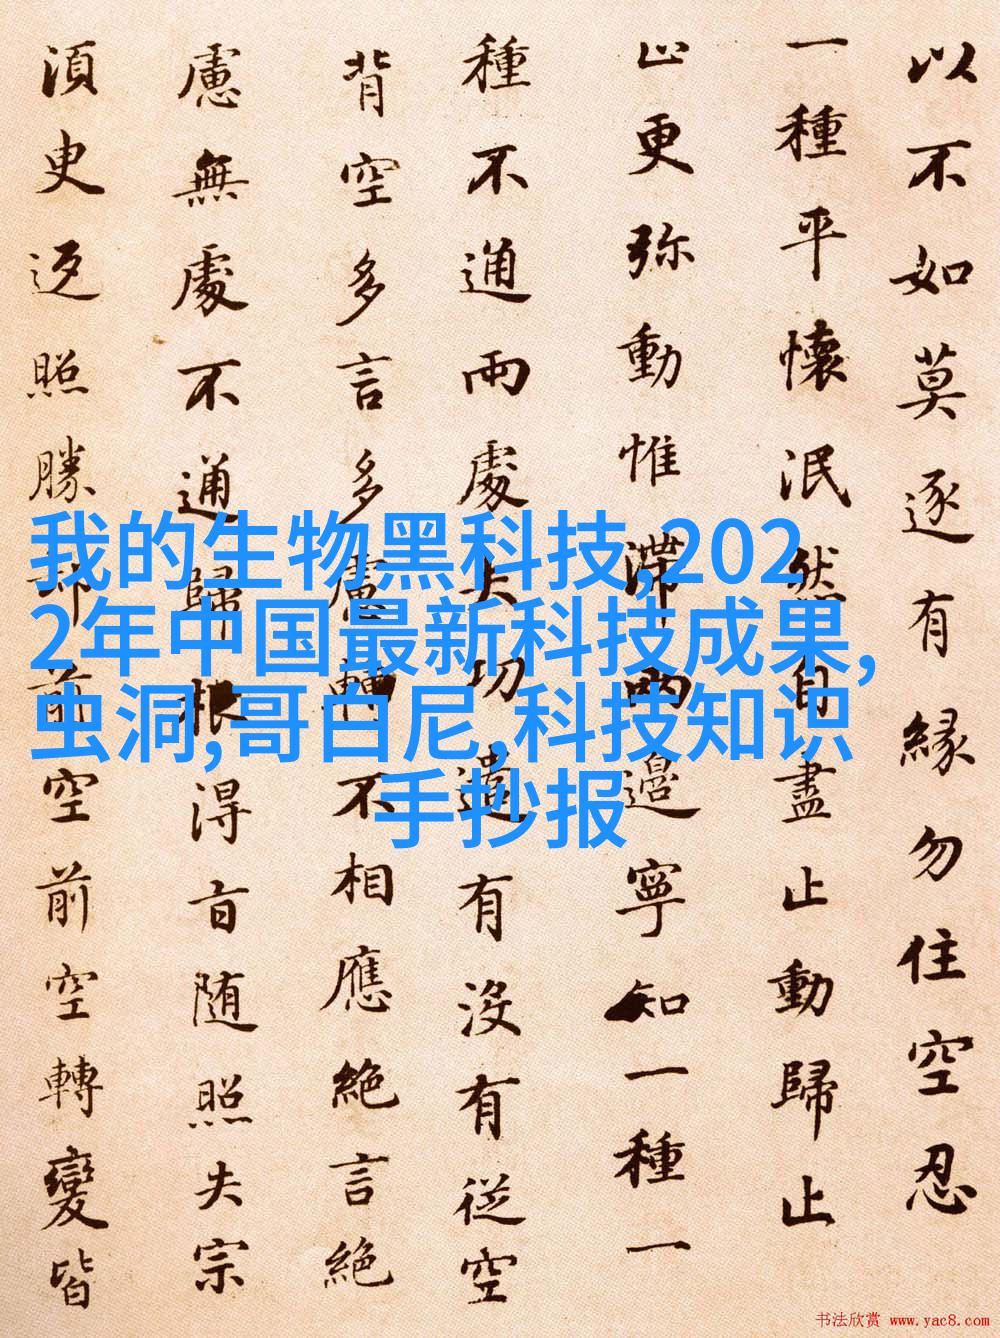 以不如莫逐有緣勿住空忍
一種平懷泯然自盡止動歸止
止更弥動惟滞兩邊寧知一種一
種不通兩處失功遣有沒有從空
背空多言多慮轉不相應絶言絶
慮無處不通歸根得旨随照失宗
須臾返照勝却前空前空轉變皆
我的生物黑科技,202
2年中国最新科技成果,
虫洞,哥白尼,科技知识
手抄报
书法欣赏 www.yac8.com